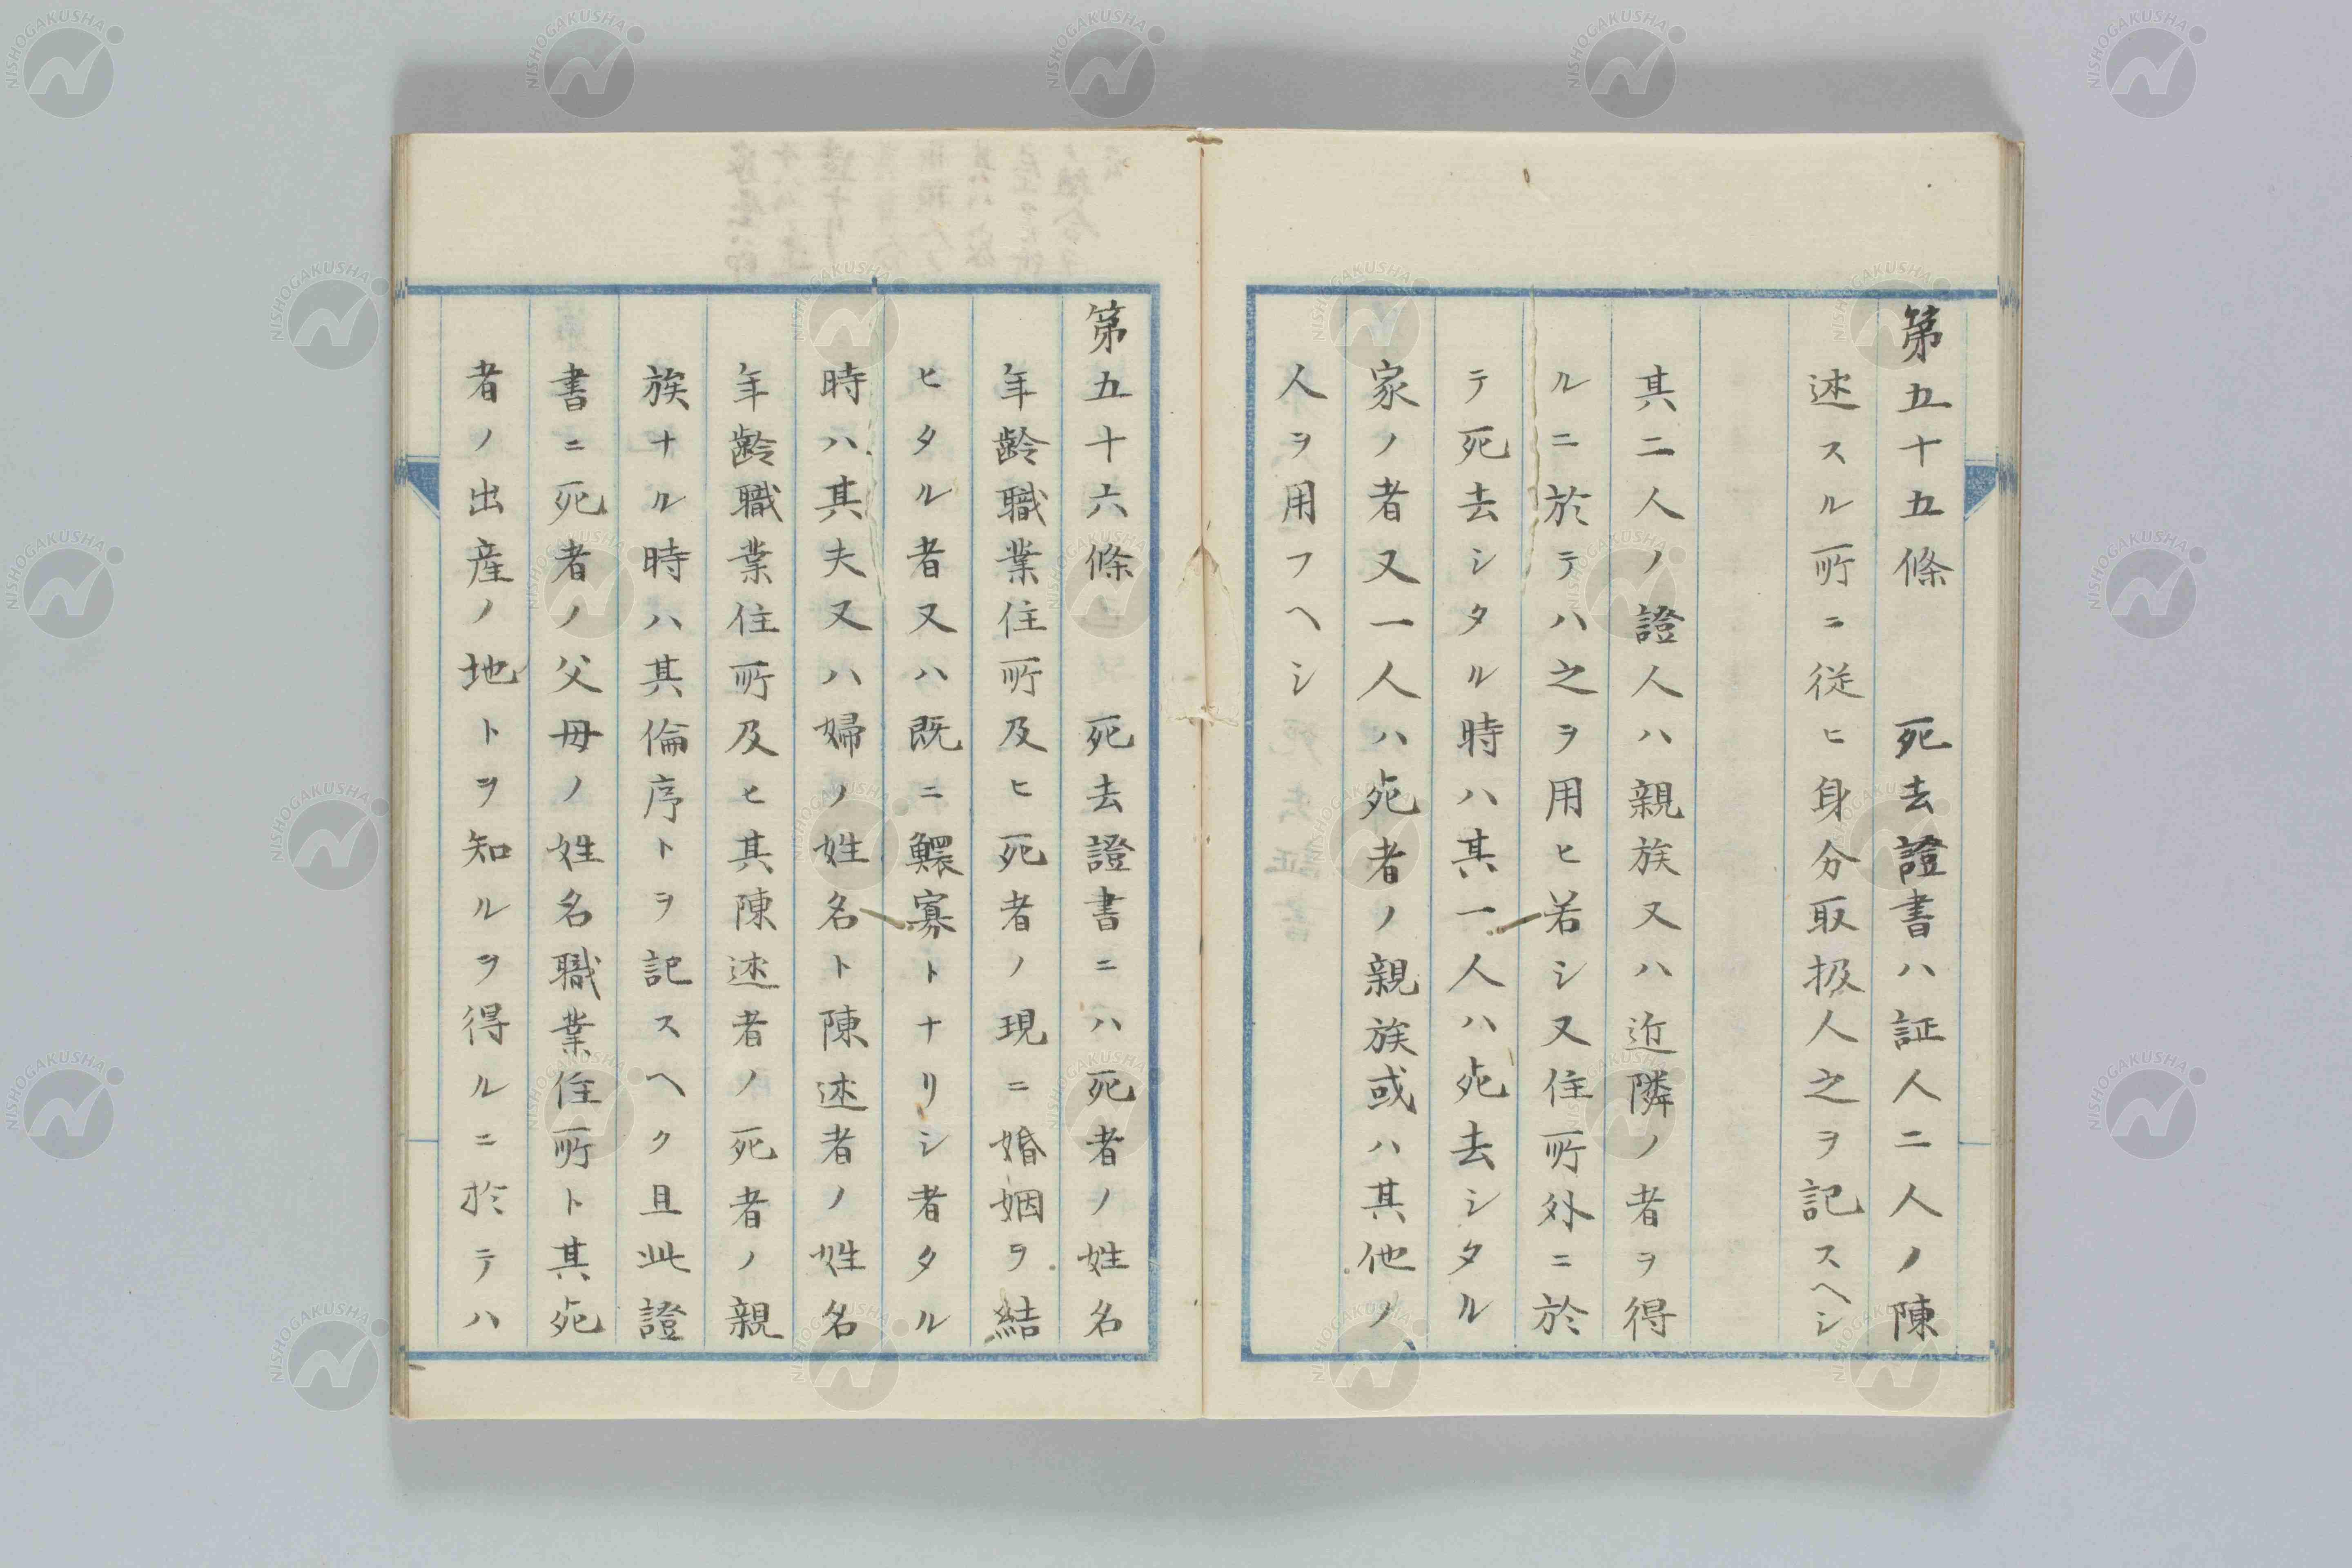 第五十五條　死去證書ハ証人二人ノ陳
述スル所ニ従ヒ身分取扱人之ヲ記スヘシ
其二人ノ證人ハ親族又ハ近隣ノ者ヲ得
ルニ於テハ之ヲ用ヒ若シ又住所外ニ於
テ死去シタル時ハ其一人ハ死去シタル
家ノ者又一人ハ死者ノ親族或ハ其他ノ
人ヲ用フヘシ
第五十六條　死去證書ニハ死者ノ姓名
年齢職業住所及ヒ死者ノ現ニ婚姻ヲ結
ヒタル者又ハ既ニ鰥寡トナリシ者タル
時ハ其夫又ハ婦ノ姓名ト陳述者ノ姓名
年齢職業住所及ヒ其陳述者ノ死者ノ親
族ナル時ハ其倫序トヲ記スヘク且此證
書ニ死者ノ父母ノ姓名職業住所ト其死
者ノ出産ノ地トヲ知ルヲ得ルニ於テハ
NISHOGAKUSHA